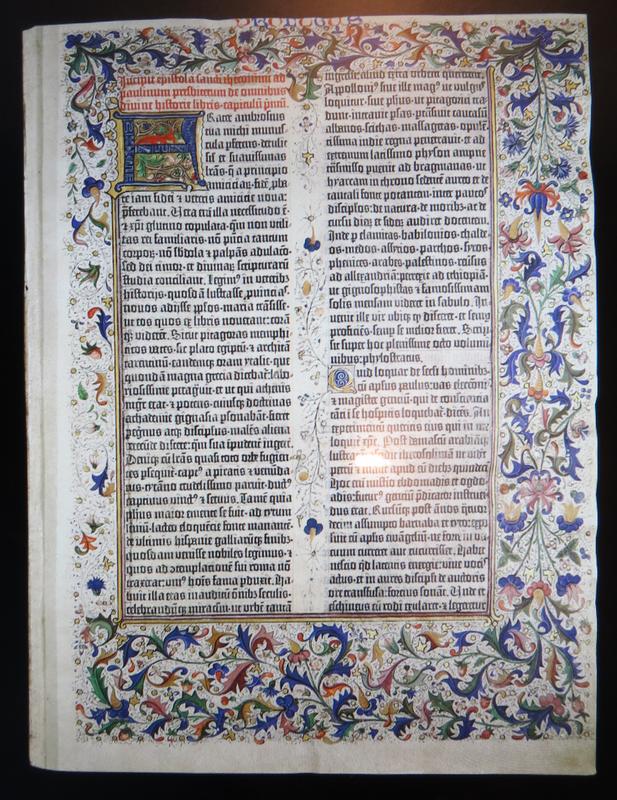 Incipit epistola sancti iheronimi ad
paulinum presbiterum de omnibus
divine historie libris. capitulū pmū.
Frater ambrosius
tua michi munus-
cula pferens. detulit
sil et suavissimas
lrās. q a principio
amiciciarū. fidē pba-
te iam fidei et veteris amicicie nova:
pferebant. Vera enī illa necessitudo ē.
et xpi glutino copulata: qm non utili-
tas rei familiaris. nō pntia tantum
corporū. nō sbdola et palpās adulacō.
sed dei timor. et divinarū scripturarū
studia conciliant. Legim in veteribs
historijs. quosdā lustrasse puincias.
novos adijsse pplos. maria trāsisse.
ut eos quos ex libris noverant: corā
q viderēt. Sicut pitagoras memphi-
ticos vates. sic plato egiptū. et architā
tarentinū. eandemq oram ytalie. que
quondā magna grecia dicebat: labo-
riosissime peragravit. et ut qui athenis
mgr erat. et potens. cuiusq doctrinas
achademie gignasia psonabāt. fieret
peregrinus atq discipulus. malēs aliena
verecunde discere: qm sua īpudent ingere.
Deniq cū lrās quasi toto orbe fugien-
tes psequit. capt a piratis et venunda-
tus. tyrāno crudelissimo paruit. duct
captivus vinct et servus. Tamē quia
phus maior emente se fuit. ad tytum
livium. lacteo eloquēcie fonte manantē.
de ultimis hispanie galliarumq finibs.
quosdam venisse nobiles legimus. et
quos ad ɔtemplacionē sui roma nō
traxerat: uni homis fama pduxit. Ha-
buit illa etas inauditū omnibs seculis.
celebrandumq miraculū. ut urbem tantā
ingressi: aliud extra urbem quererent.
Apollonius sive ille magus ut vulgus
loquitur. sive phus ut pitagorici tra-
dunt. intravit psas. ptrāsivit caucasū
albanos. scithas. massagetas. opulē-
tissima indie regna penetravit. et ad
extremum latissimo physon ampne
trāsmisso puenit ad bragmanas. ut
hyarcam in throno sedentē aureo et de
tantali fonte potantem. inter paucos
discipulos: de natura. de moribs. ac de
cursu dierū et siderū audiret docentem.
Inde p elamitas. babilonios. chalde-
os. medos. assyrios. parthos. syros.
phenices. arabes. palestinos. reversus
ad allexandriā: perrexit ad ethiopiā.
ut gignosophistas et famosissimam
solis mensam videret in sabulo. In-
venit ille vir ubiq qd disceret. et semp
proficiēs. semp se melior fieret. Scrip-
sit super hoc plenissime octo volumi-
nibus: phylostratus.
Quid loquar de secli hominibs.
cū aplus paulus: vas electōis.
et magister gentiū. qui de conscientia
tāti ī se hospitis loquebat. dicēs. An
experimentum queritis eius qui in me
loquitur xpc. Post damascū arabiāq
lustratā: ascēdit iherosolimā ut vidēt
petrū et māsit apud eū diebs quindeci.
Hoc enī misterio ebdomadis et ogdo-
adis: futurus gentiū pdicator instruen-
dus erat. Rursūq post ānos quatuor-
decim assumpto barnaba et tyto: expo-
suit cū aplis ewāgelium. ne forte in va-
cuum curreret aut cucurrisset. Habet
nescio qd latentis energie: vive vocis
actus. et in aures discipli de auctoris
ore transfusa: forcius sonat. Unde et
eschineus cū rodi exularet. et legeretur